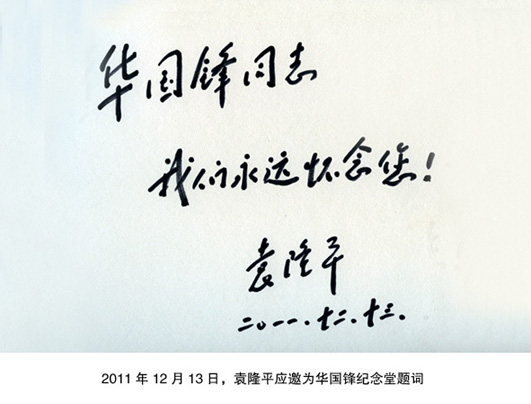 华国锋同志
我们永远怀念您！
袁隆平
二〇一一.十二.十三.
2011 年 12 月 13 日，袁隆平应邀为华国锋纪念堂题词